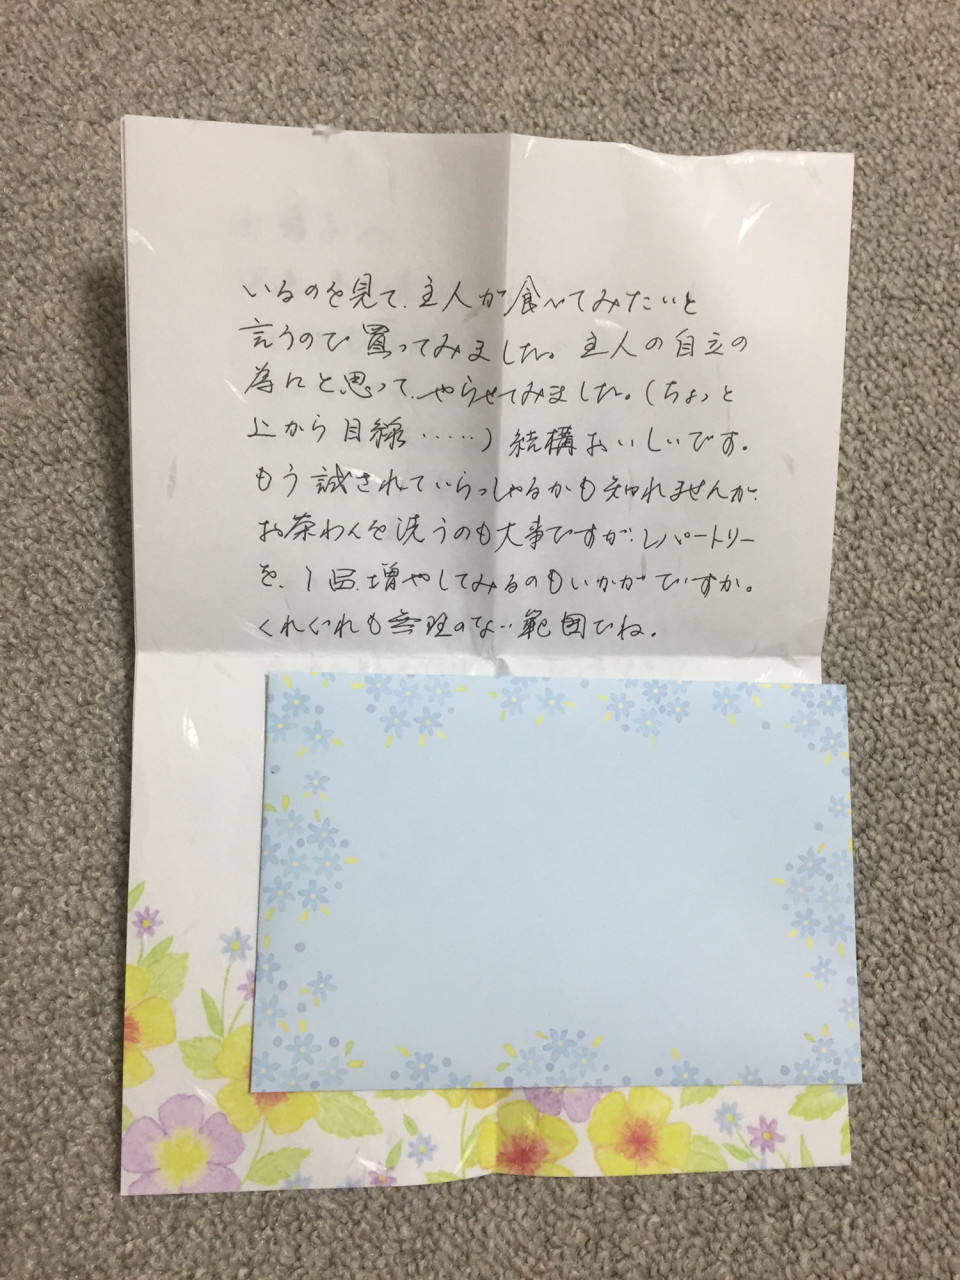 いるのを見て、主人が食べてみたいと
言うので買ってみました。主人の自立の
為にと思って、やらせてみました。(ちょっと
上から目線‥‥‥)結構おいしいです。
もう試されていらっしゃるかも知れませんが、
お茶わんを洗うのも大事ですが、レパートリー
を、1品、増やしてみるのもいかがですか。
くれぐれも無理のない範囲でね。